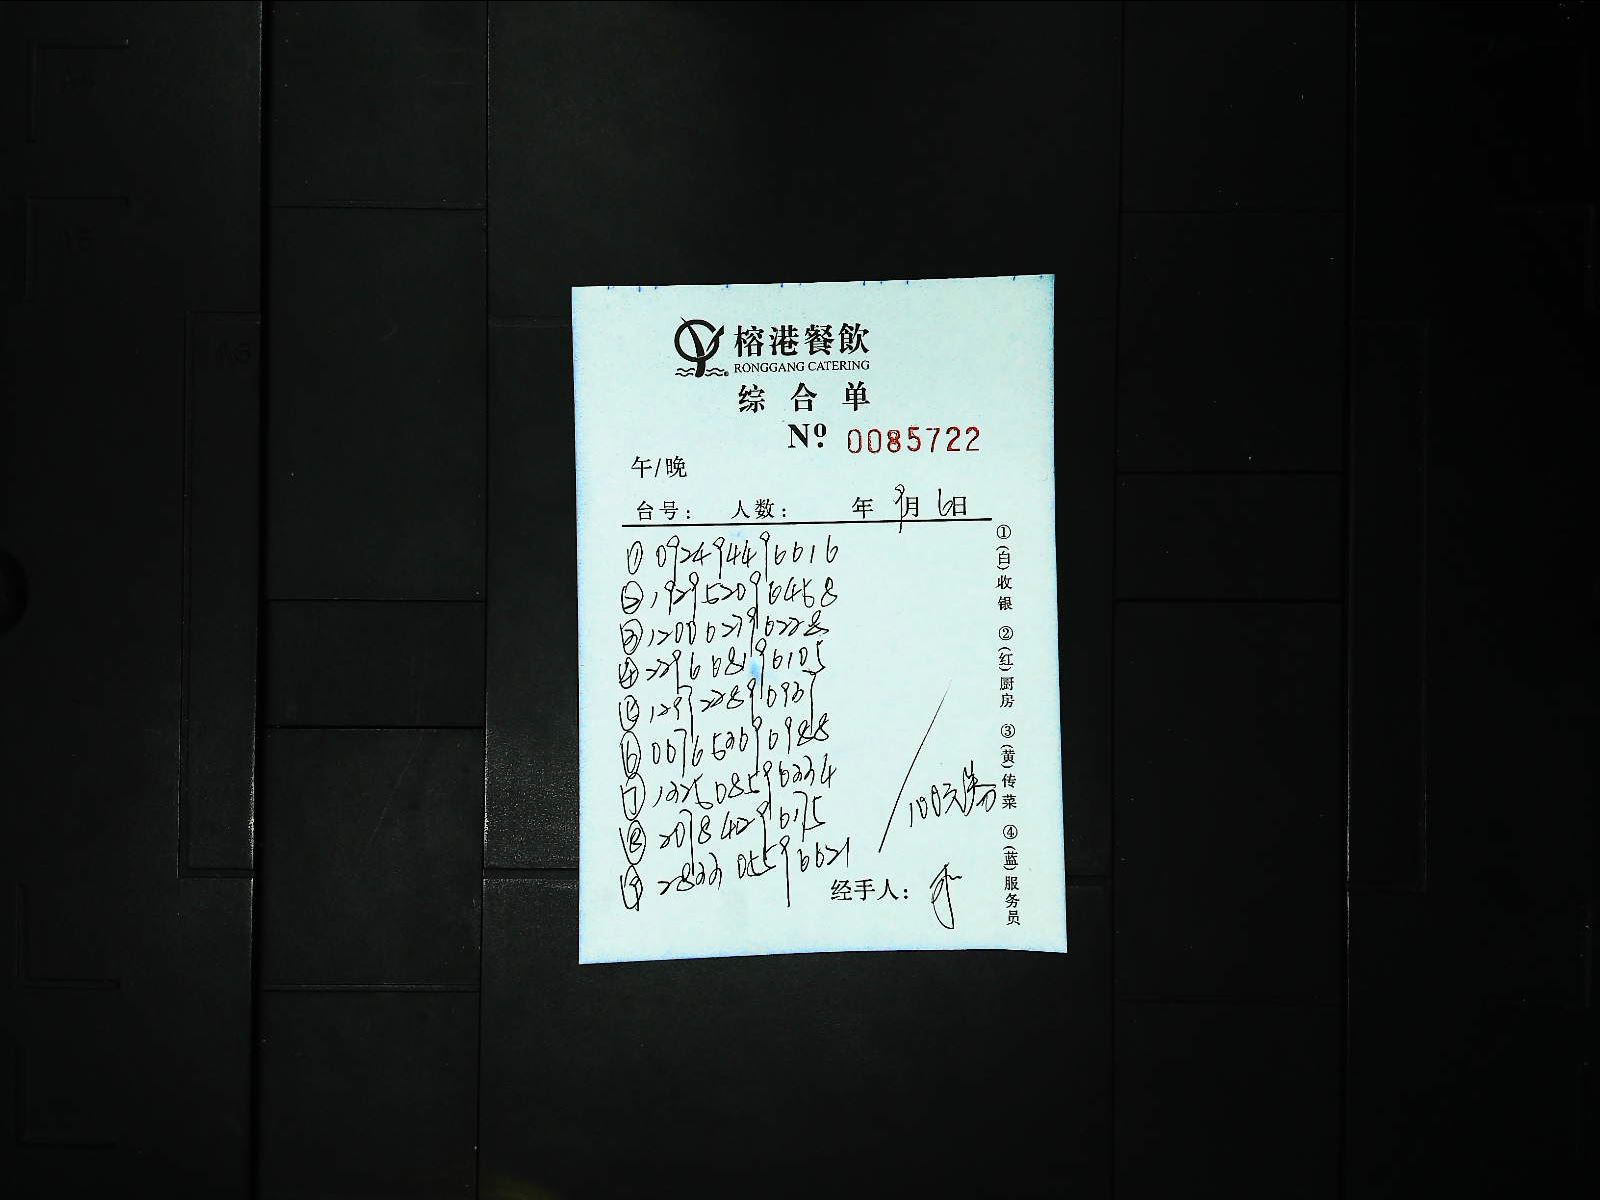 榕港餐飲
RONGGANG CATERING
综合单
Nº. 0085722
午/晚
台号： 人数： 年 9月 6日
① 092494496616
② 192952096458
③ 120062796228
④ 229608196105
⑤ 129722890937
⑥ 007652690988
⑦ 132508596334
⑧ 20784296175
⑨ 283305596621
100元券
经手人：
①(白)收银 ②(红)厨房 ③(黄)传菜 ④(蓝)服务员